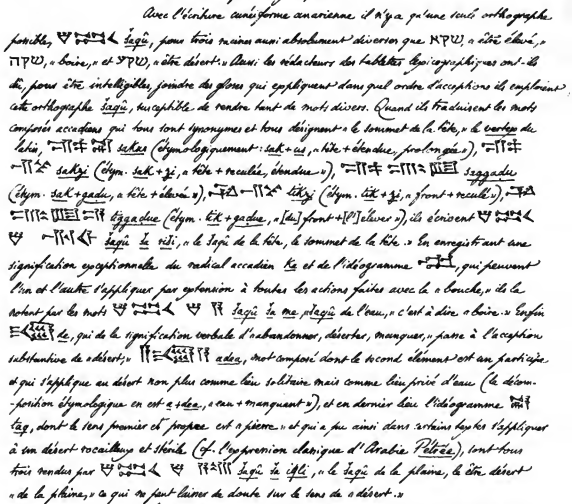 Avec l'écriture cunéiforme anarienne il n'y a qu'une seule orthographe
possible, šaqû, pour trois racines aussi absolument diverses que שקא, « être élevé, »
שקה, « boire, » et שקע, « être désert. » Aussi les rédacteurs des tablettes lexicographiques ont-ils
dû, pour être intelligibles, joindre des gloses qui expliquent dans quel ordre d'acceptions ils emploient
cette orthographe šaqû, susceptible de rendre tant de mots divers. Quand ils traduisent les mots
composés accadiens qui tous sont synonymes et tous désignent « le sommet de la tête, » le vertex du
latin, sakus (étymologiquement : sak + us, « tête + étendue, prolongée »),
sakzi (étym. sak + zi, « tête + reculée, étendue »), saggadu
(étym. sak + gadu, « tête + élevée »), tikzi (étym. tik + zi, « front + reculé »),
tiggadue (étym. tik + gadue, « [du] front + [l']élever »), ils écrivent
šaqû ša riši, « le šaqû de la tête, le sommet de la tête. » En enregistrant une
signification exceptionnelle du radical accadien ka et de l'idéogramme , qui peuvent
l'un et l'autre s'appliquer par extension à toutes les actions faites avec la « bouche, » ils la
notent par les mots šaqû ša me, « šaqû de l'eau, » c'est à dire « boire. » Enfin
de, qui de la signification verbale d'« abandonner, déserter, manquer, » passe à l'acception
substantive de « désert, » adea, mot composé dont le second élément est un participe
et qui s'applique au désert non plus comme lieu solitaire mais comme lieu privé d'eau (la décom-
-position étymologique en est a + dea, « eau + manquant »), et en dernier lieu l'idéogramme
tag, dont le sens premier et propre est « pierre » et qui a pu ainsi dans certains textes s'appliquer
à un désert rocailleux et stérile (cf. l'expression classique d'Arabie Pétrée), sont tous
trois rendus par šaqû ša iqli, « le šaqû de la plaine, le être désert
« de la plaine, » ce qui ne peut laisser de doute sur le sens de « désert. »